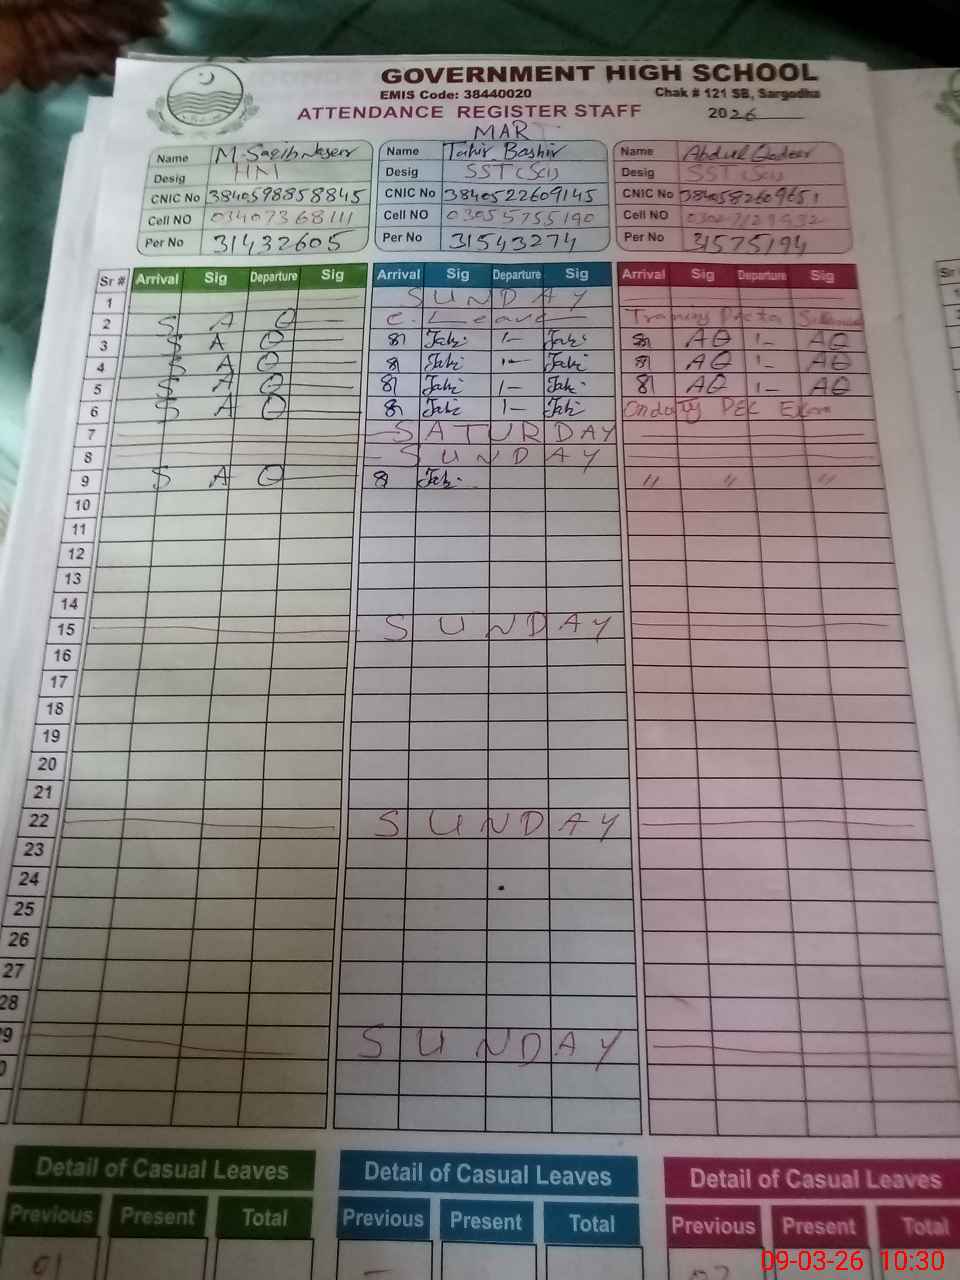 GOVERNMENT HIGH SCHOOL
EMIS Code: 38440020 Chak # 121 SB, Sargodha
ATTENDANCE REGISTER STAFF 2026
MAR
Name M. Saqib Naseer Name Tahir Bashir Name Abdul Qadeer
Desig HM Desig SST (Sci) Desig SST (Sci)
CNIC No 3840598858845 CNIC No 3840522609145 CNIC No 3840582609651
Cell NO 03407368111 Cell NO 03055755190 Cell NO
Per No 31432605 Per No 31543274 Per No 31575194
Sr # Arrival Sig Departure Sig Arrival Sig Departure Sig Arrival Sig Departure Sig
1 SUNDAY
2 S A O C. Leave Training
3 S A O 8 1- AQ 1- AQ
4 S A O 8 1- AQ 1- AQ
5 S A O 8 1- AQ 1- AQ
6 S A O 8 1- On duty PEC Exam
7 SATURDAY
8 SUNDAY
9 S A O 8 " " "
10
11
12
13
14
15 SUNDAY
16
17
18
19
20
21
22 SUNDAY
23
24
25
26
27
28
29 SUNDAY
Detail of Casual Leaves Detail of Casual Leaves Detail of Casual Leaves
Previous Present Total Previous Present Total Previous Present Total
01 -
09-03-26 10:30